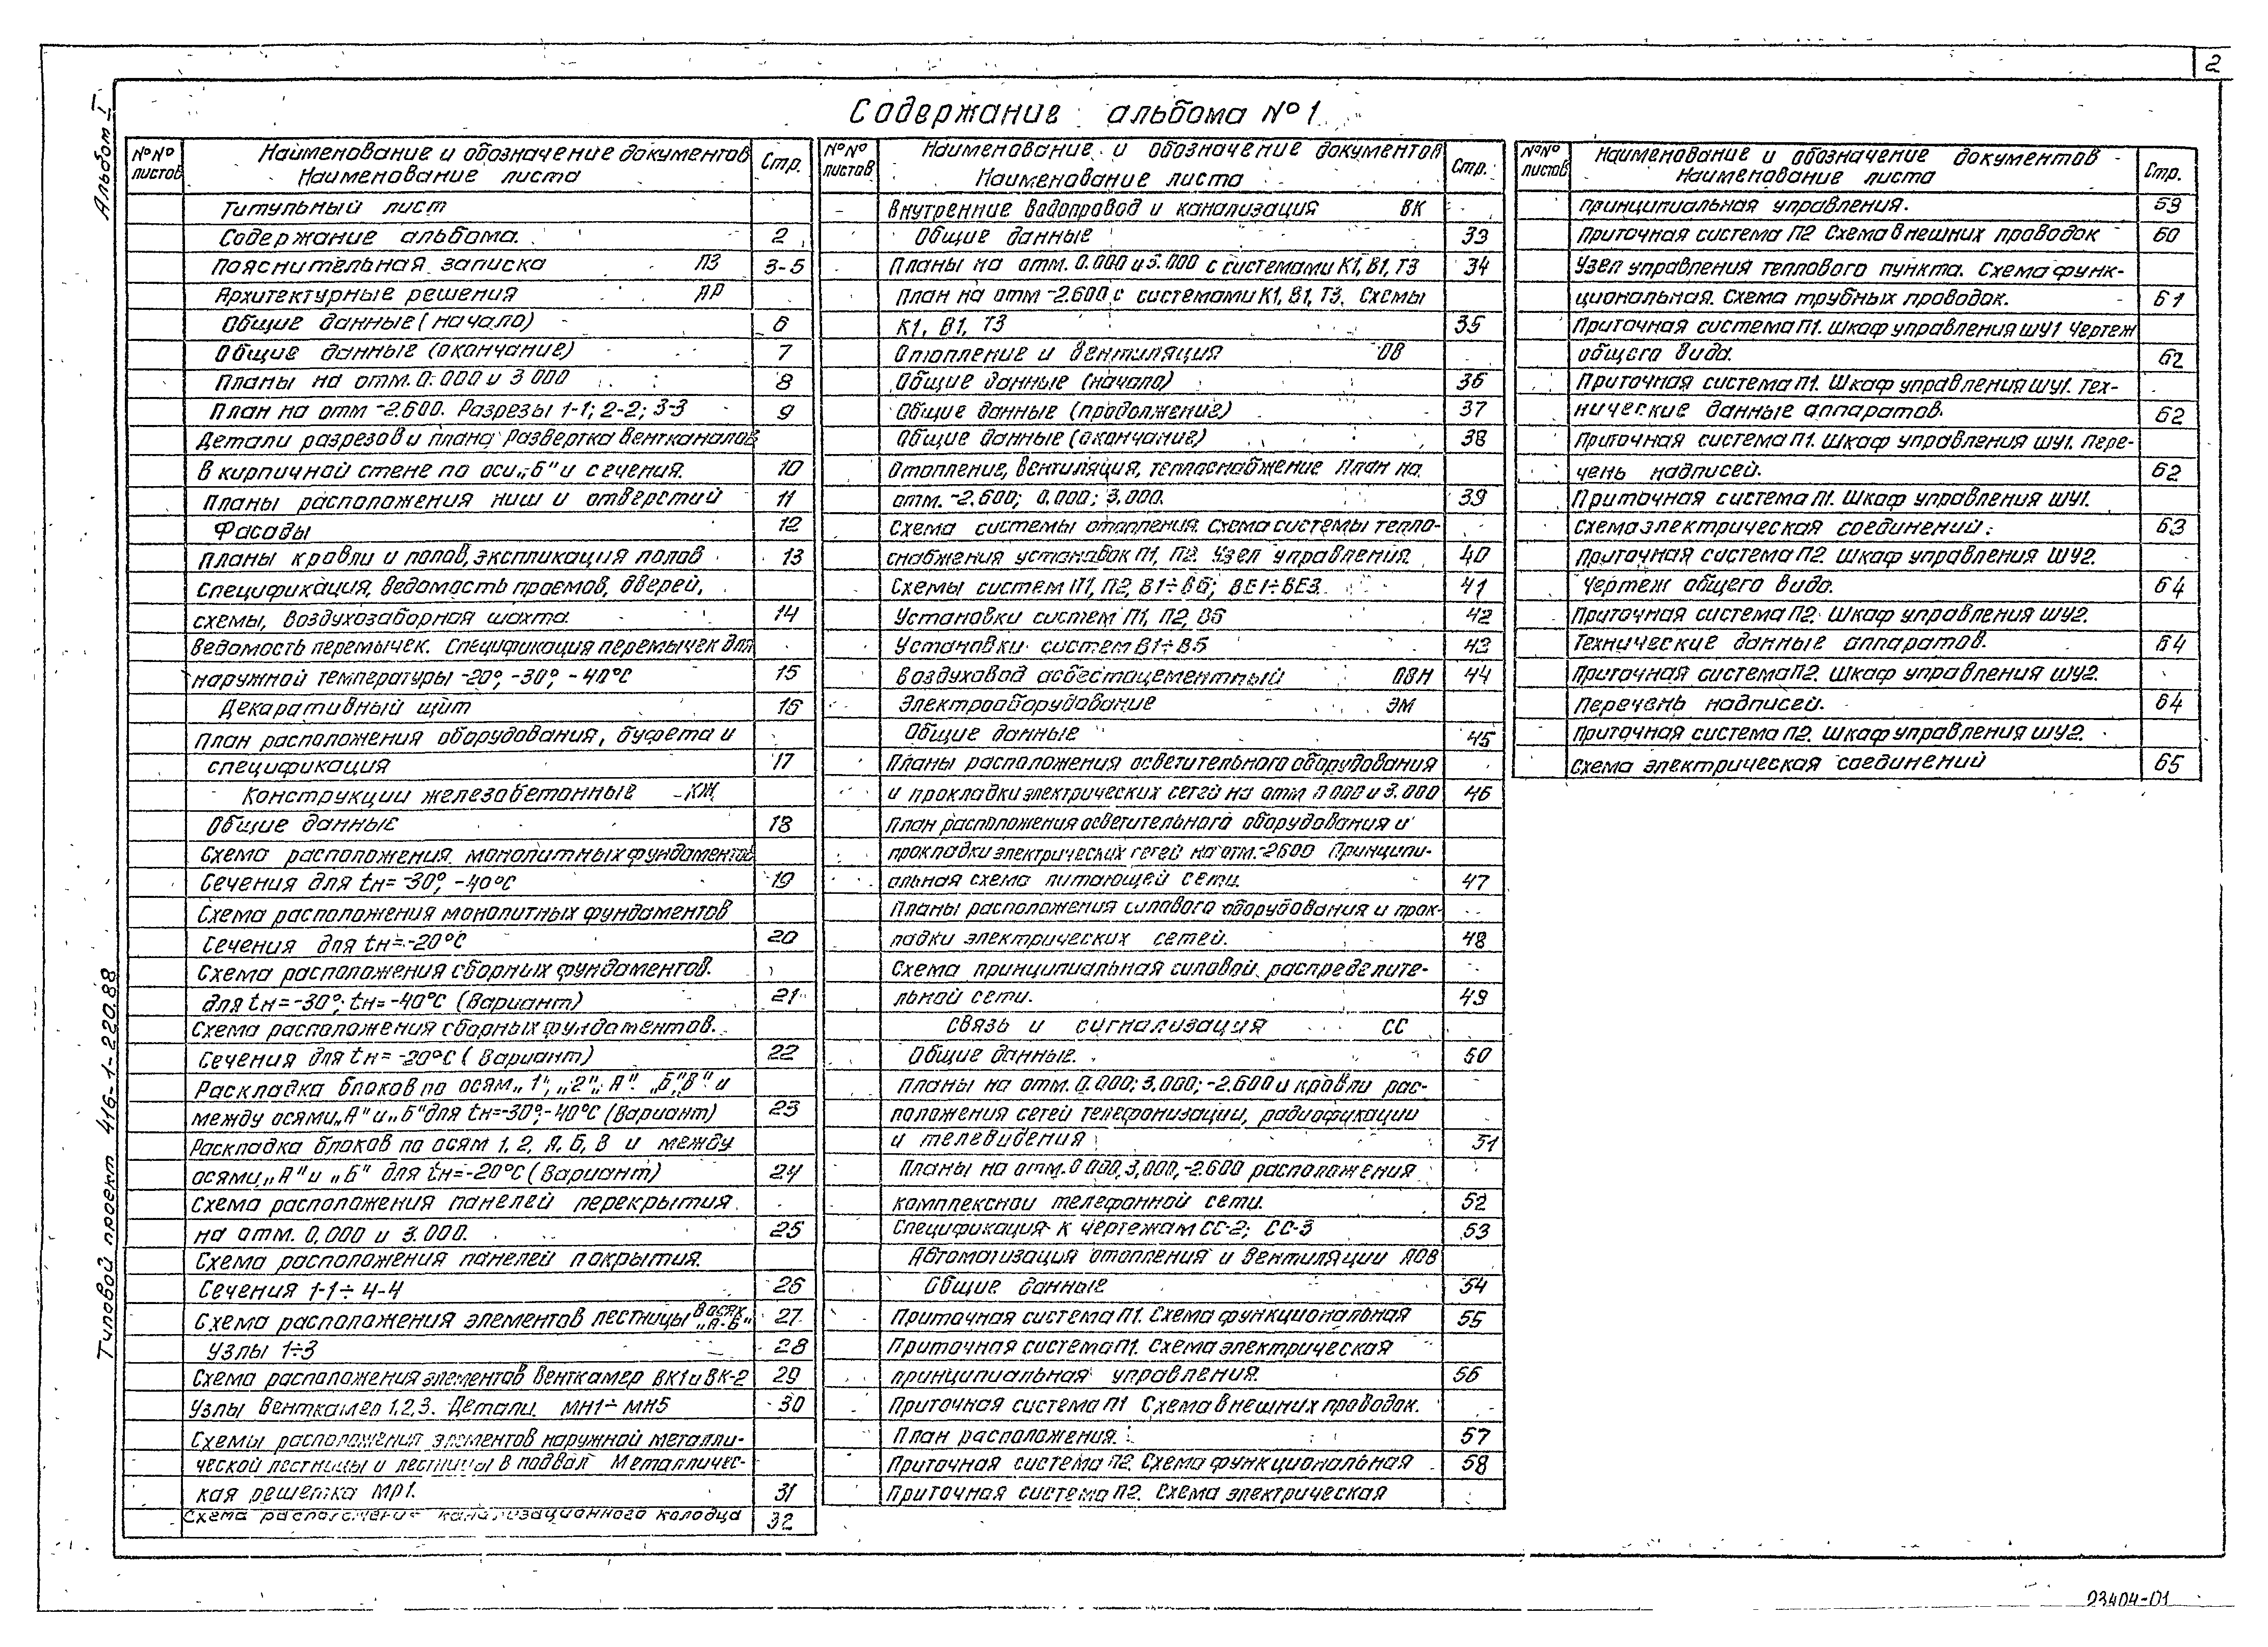 2
Альбом I
Содержание альбома №1
№№ листов
Наименование и обозначение документов
Наименование листа
Стр.
Титульный лист
Содержание альбома. 2
Пояснительная записка ПЗ 3-5
Архитектурные решения АР
Общие данные (начало) 6
Общие данные (окончание) 7
Планы на отм. 0.000 и 3 000 8
План на отм -2.600. Разрезы 1-1; 2-2; 3-3 9
Детали разрезов и плана Развертка вентканалов
в кирпичной стене по оси „Б" и сечения. 10
Планы расположения ниш и отверстий 11
Фасады 12
Планы кровли и полов, экспликация полов 13
Спецификация, ведомость проемов, дверей,
схемы, воздухозаборная шахта. 14
Ведомость перемычек. Спецификация перемычек для
наружной температуры -20°, -30°, -40°С 15
Декоративный щит 16
План расположения оборудования, буфета и
спецификация 17
Конструкции железобетонные КЖ
Общие данные 18
Схема расположения монолитных фундаментов
Сечения для tн= -30°, -40°С 19
Схема расположения монолитных фундаментов
Сечения для tн= -20°С 20
Схема расположения сборных фундаментов.
для tн= -30°; tн= -40°С (Вариант) 21
Схема расположения сборных фундаментов.
Сечения для tн= -20°С (Вариант) 22
Раскладка блоков по осям „1", „2", „А" „Б", „В" и
между осями „А" и „Б" для tн=-30°,-40°С (Вариант) 23
Раскладка блоков по осям 1, 2, А, Б, В и между
осями „А" и „Б" для tн=-20°С (Вариант) 24
Схема расположения панелей перекрытия
на отм. 0,000 и 3.000. 25
Схема расположения панелей покрытия.
Сечения 1-1÷4-4 26
Схема расположения элементов лестницы в осях „А-Б" 27
Узлы 1÷3 28
Схема расположения элементов венткамер ВК1 и ВК-2 29
Узлы венткамер 1,2,3. Детали. МН1÷МН5 30
Схемы расположения элементов наружной металли-
ческой лестницы и лестницы в подвал Металличес-
кая решетка МР1. 31
Схема расположения канализационного колодца 32
№№ листов
Наименование и обозначение документов
Наименование листа
Стр.
Внутренние водопровод и канализация ВК
Общие данные 33
Планы на отм. 0.000 и 3.000 с системами К1, В1, Т3 34
План на отм -2.600 с системами К1, В1, Т3. Схемы
К1, В1, Т3 35
Отопление и вентиляция ОВ
Общие данные (начало) 36
Общие данные (продолжение) 37
Общие данные (окончание) 38
Отопление, вентиляция, теплоснабжение План на
отм. -2.600; 0.000; 3.000. 39
Схема системы отопления. Схема системы тепло-
снабжения установок П1, П2. Узел управления. 40
Схемы систем П1, П2, В1÷В6; ВЕ1÷ВЕ3. 41
Установки систем П1, П2, В6 42
Установки систем В1÷В5 43
Воздуховод асбестоцементный ОВН 44
Электрооборудование ЭМ
Общие данные 45
Планы расположения осветительного оборудования
и прокладки электрических сетей на отм 0 000 и 3.000 46
План расположения осветительного оборудования и
прокладки электрических сетей на отм.-2600 Принципи-
альная схема питающей сети. 47
Планы расположения силового оборудования и прок-
ладки электрических сетей. 48
Схема принципиальная силовой распределите-
льной сети. 49
Связь и сигнализация СС
Общие данные. 50
Планы на отм. 0.000; 3,000; -2.600 и кровли рас-
положения сетей телефонизации, радиофикации
и телевидения 51
Планы на отм. 0 000, 3,000, -2.600 расположения
комплексной телефонной сети. 52
Спецификация к чертежам СС-2; СС-3 53
Автоматизация отопления и вентиляции АОВ
Общие данные 54
Приточная система П1. Схема функциональная 55
Приточная система П1. Схема электрическая
принципиальная управления. 56
Приточная система П1 Схема внешних проводок.
План расположения. 57
Приточная система П2. Схема функциональная 58
Приточная система П2. Схема электрическая
№№ листов
Наименование и обозначение документов
Наименование листа
Стр.
принципиальная управления. 59
Приточная система П2 Схема внешних проводок 60
Узел управления теплового пункта. Схема функ-
циональная. Схема трубных проводок. 61
Приточная система П1. Шкаф управления ШУ1 Чертеж
общего вида. 62
Приточная система П1. Шкаф управления ШУ1. Тех-
нические данные аппаратов. 62
Приточная система П1. Шкаф управления ШУ1. Пере-
чень надписей. 62
Приточная система П1. Шкаф управления ШУ1.
Схема электрическая соединений. 63
Приточная система П2. Шкаф управления ШУ2.
Чертеж общего вида. 64
Приточная система П2. Шкаф управления ШУ2.
Технические данные аппаратов. 64
Приточная система П2. Шкаф управления ШУ2.
Перечень надписей. 64
Приточная система П2. Шкаф управления ШУ2.
Схема электрическая соединений 65
Типовой проект 416-1-220.88
23404-01